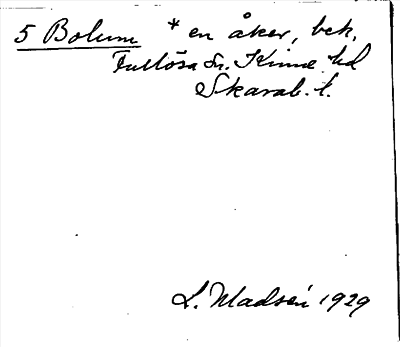 5 Bolum * en åker, bek.
Fullösa sn. Kinne hd
Skarab. l.
L. Madsén 1929